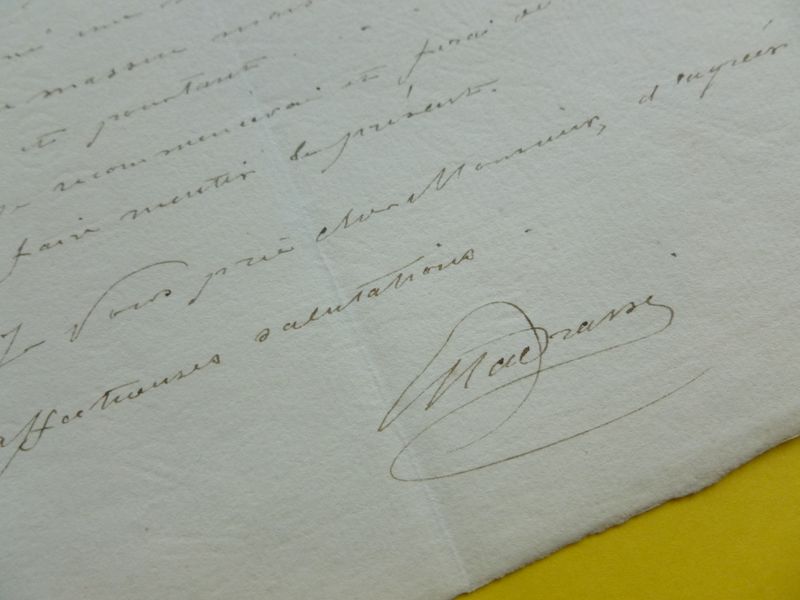 une
masseur mais
et pourtant . . .
recommencerai et ferai de
faire mentir le présent.
Je vous prie cher Monsieur, d'agréer
affectueuses salutations.
Madrassi